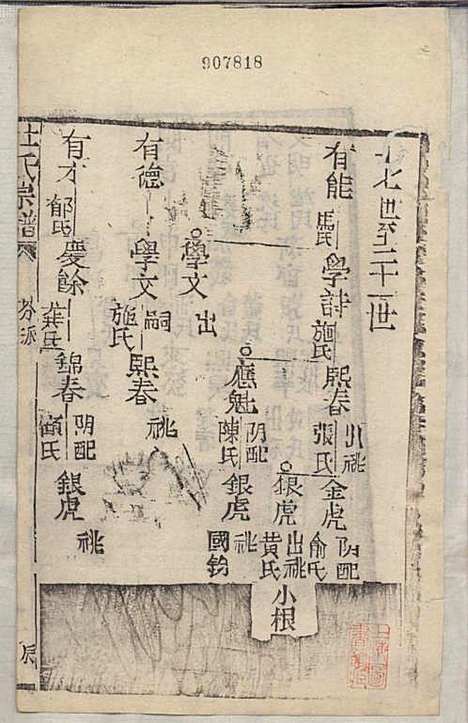 907818
十七世至二十一世
有能
馬氏
學詩
施氏
熙春
出祧
張氏
金虎
阴配
俞氏
銀虎
出祧
黃氏
小根
學文
出
應魁
阴配
陳氏
銀虎
祧
國鈞
有德
學文
嗣
施氏
熙春
祧
有才
郁氏
慶餘
龚氏
錦春
阴配
顧氏
銀虎
祧
杜氏宗譜
分派